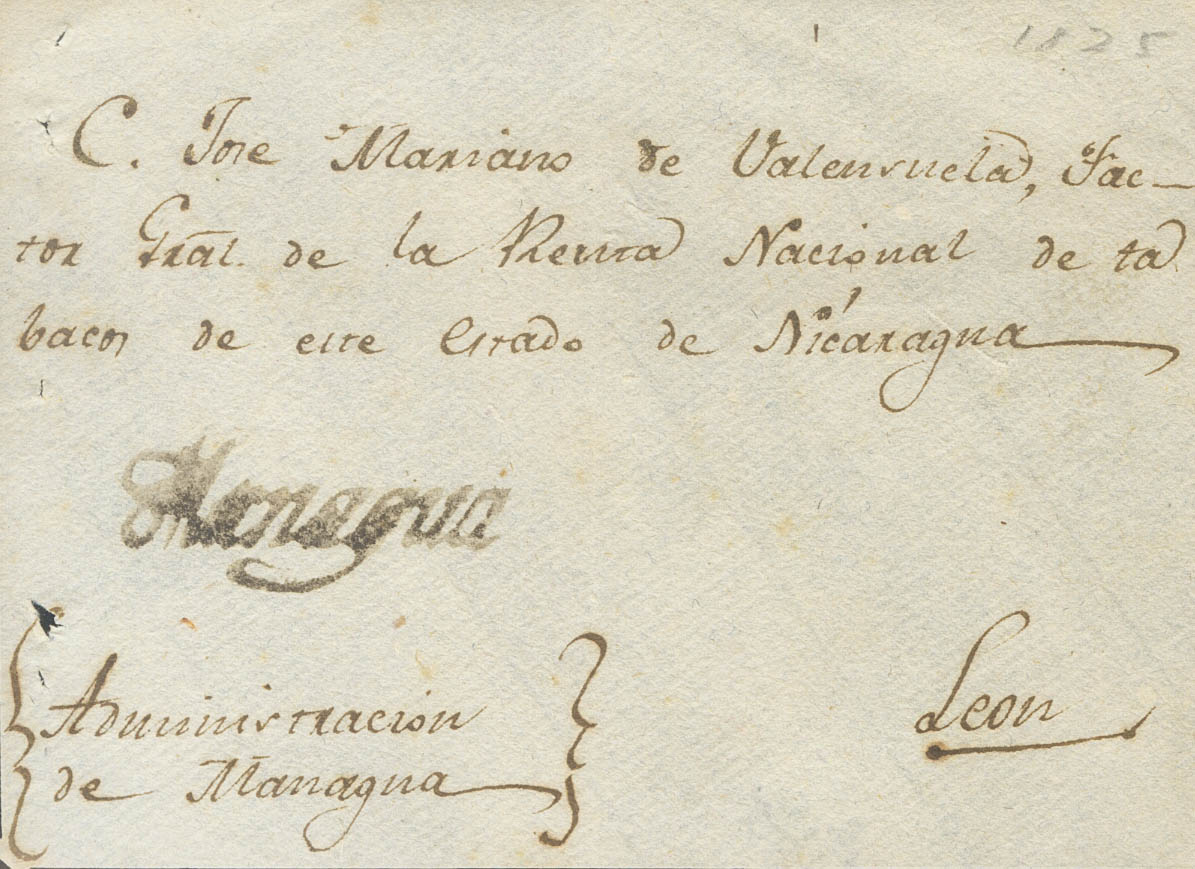 1825
C. Jose Mariano de Valensuela, Fac-
tor Gral. de la Renta Nacional de ta
bacos de este Estado de Nicaragua
Managua
Administracion
de Managua
Leon